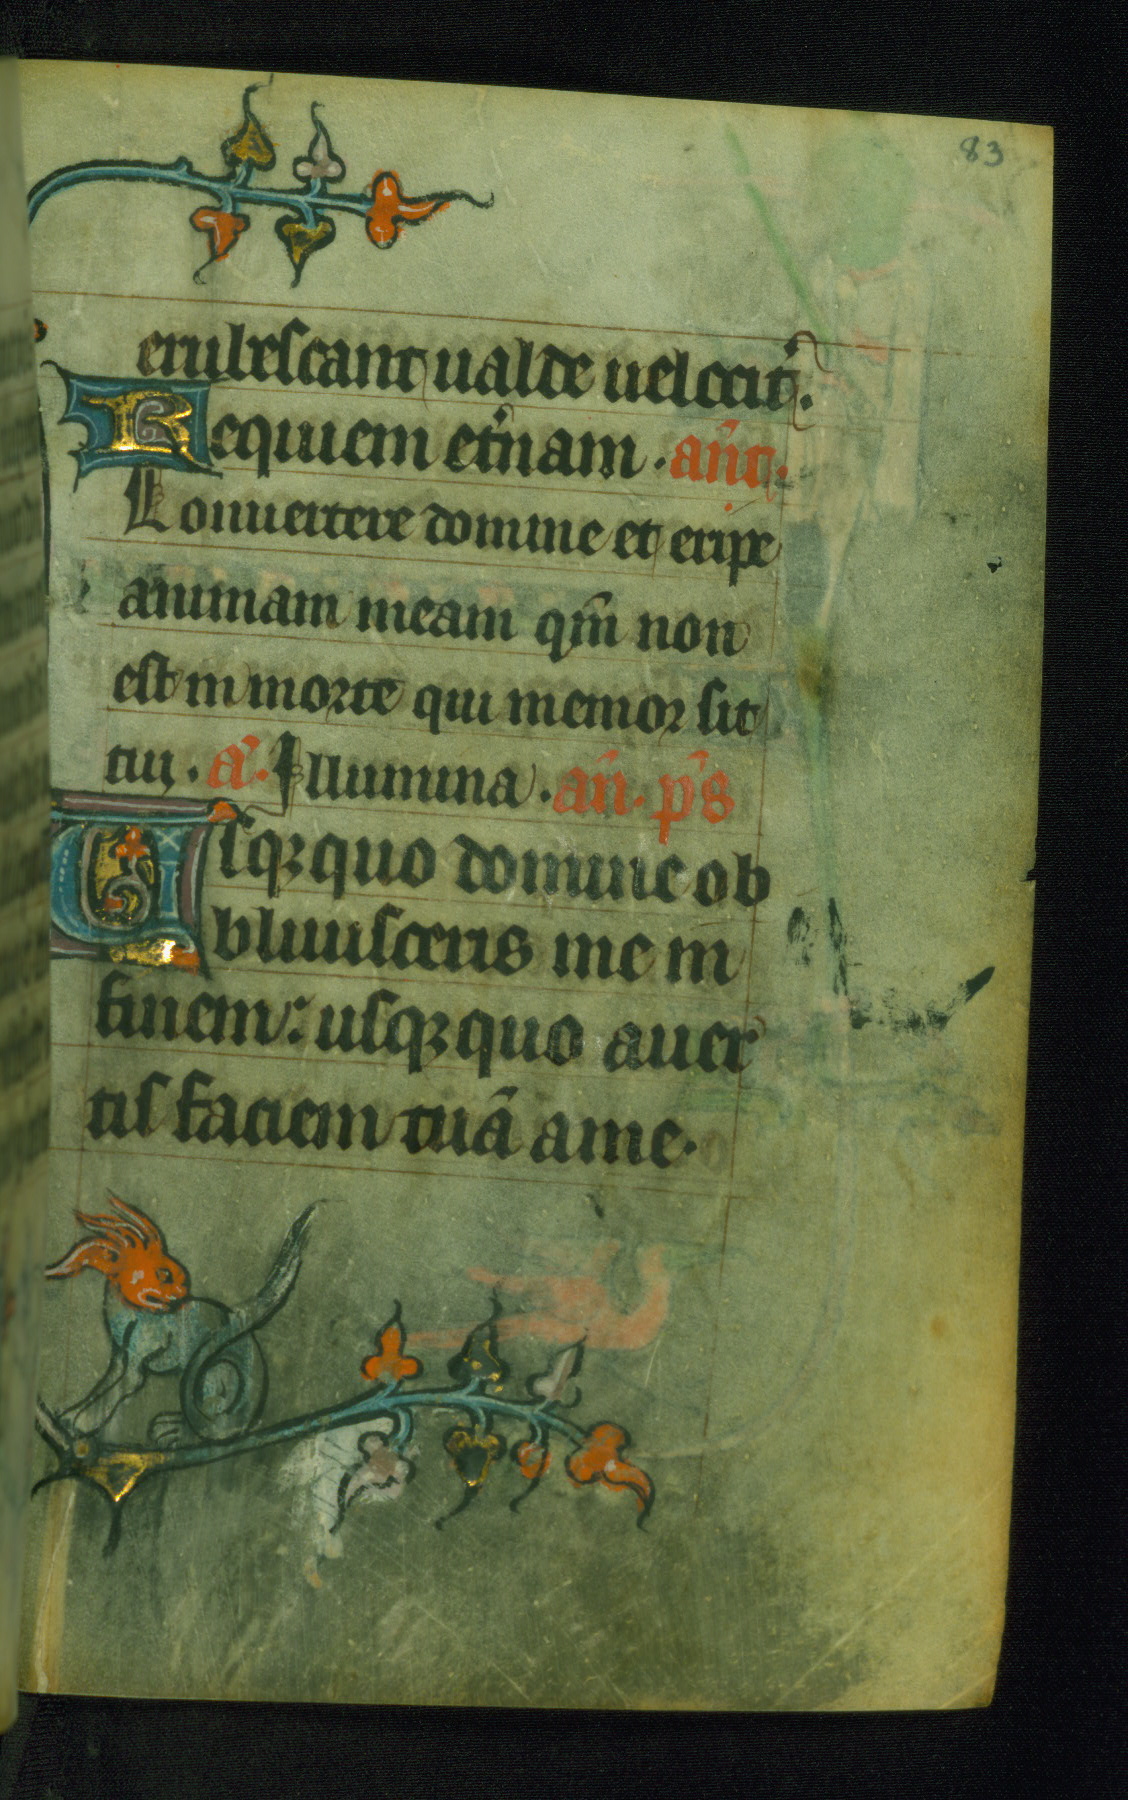 83
erubescant ualde uelocit̾.
Requiem et̾nam . an̄t.
Conuertere domine et eripe
animam meam qm̄ non
est in morte qui memor sit
tui . a̾. Illumina . an̄. p̄s
Vsqꝫ quo domine ob
bliuisceris me in
finem: usqꝫ quo auer
tis faciem tuā a me.